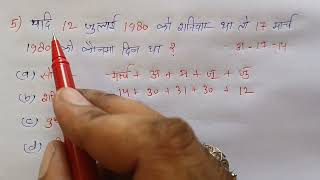 5) यदि 12 जुलाई 1980 को शनिवार था तो 17 मार्च
1980 को कौनसा दिन था ?
31-17-14
(a) मार्च + अ + म + जू + जु
(b) 14 + 30 + 31 + 30 + 12
(c)
(d)